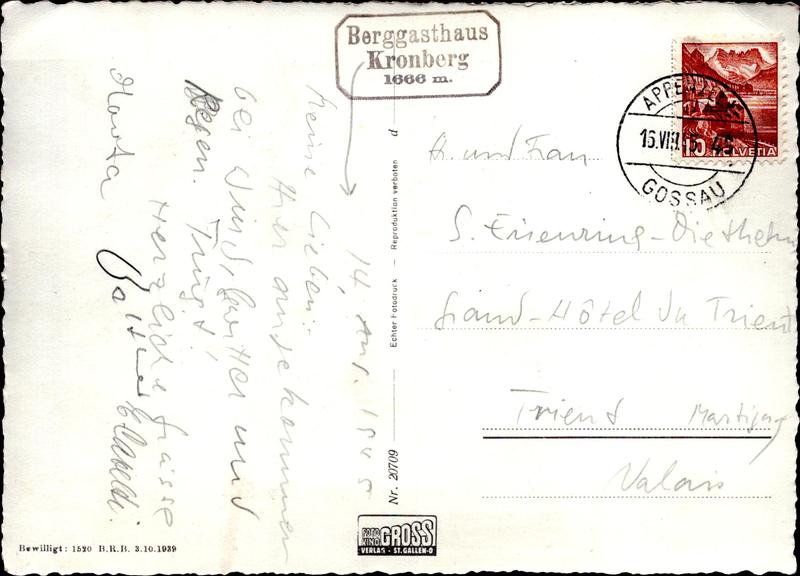 Berggasthaus
Kronberg
1666 m.
14. Aug. 1945
Meine Lieben!
Hier angekommen
bei Wind, Gewitter und
Regen.
Herzliche Grüsse
d
Reproduktion verboten
Echter Fotodruck
Nr. 20709
FOTO KINO GROSS
VERLAG - ST. GALLEN-O
Bewilligt: 1520 B.R.B. 3.10.1939
10 HELVETIA
APPENZELL
GOSSAU
H. und Frau
Grand-Hôtel du Trient
Trient Martigny
Valais